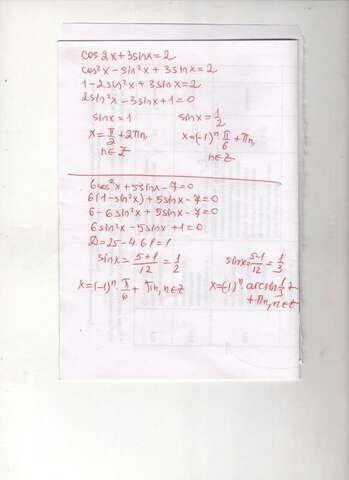 cos2x+3sinx=2
cos²x-sin²x+3sinx=2
1-2sin²x+3sinx=2
2sin²x-3sinx+1=0
sinx=1 sinx=1/2
x=π/2+2πn, x=(-1)ⁿ π/6+πn,
n∈Z n∈Z
6cos²x+5sinx-7=0
6(1-sin²x)+5sinx-7=0
6-6sin²x+5sinx-7=0
6sin²x-5sinx+1=0
D=25-4·6·1=1
sinx=5+1/12=1/2 sinx=5-1/12=1/3
x=(-1)ⁿ·π/6+πn, n∈Z x=(-1)ⁿ arcsin1/3+
+πn, n∈Z